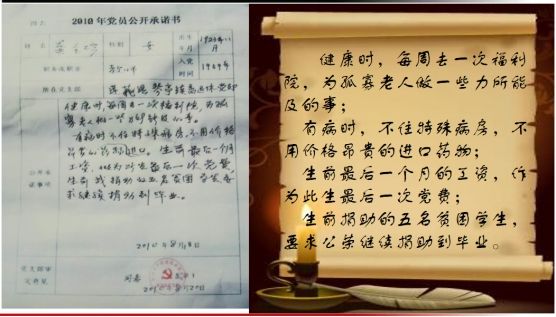 2010年党员公开承诺书
姓名
性别
女
出生年月
1924年11月
职务或职称
入党时间
1949年
所在党支部
健康时,每周去一次福利院,为孤
寡老人做一些力所能及的事。
有病时不住特殊病房,不用价格
生前最后一个月
工资,
生前
求继续捐助到毕业。
2010年8月18日
党支部审定意见
同意
2010年8月20日
健康时,每周去一次福利
院,为孤寡老人做一些力所能
及的事;
有病时,不住特殊病房,不
用价格昂贵的进口药物;
生前最后一个月的工资,作
为此生最后一次党费;
生前捐助的五名贫困学生,
要求公荣继续捐助到毕业。